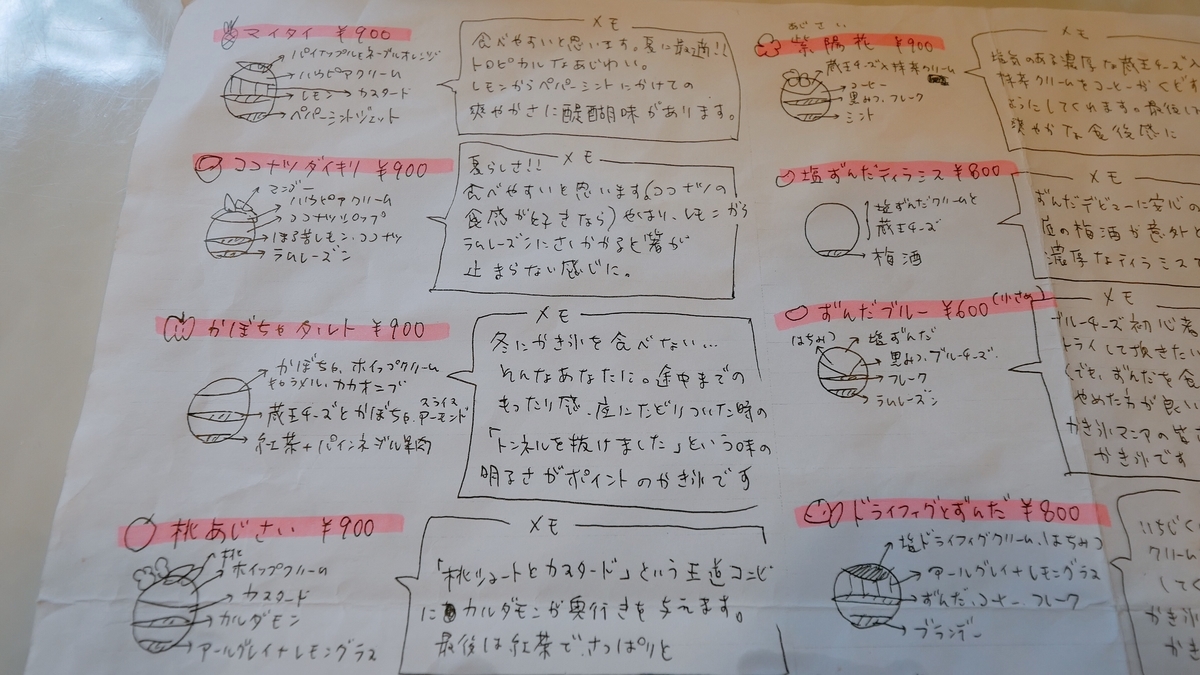 マイタイ ¥900
パイナップルとネーブルオレンジ
ハウピアクリーム
レモン カスタード
ペパーミントジェット
メモ
食べやすいと思います。夏に最適!!
トロピカルなあじわい。
レモンからペパーミントにかけての
爽やかさに醍醐味があります。
ココナツダイキリ ¥900
マンゴー
ハウピアクリーム
ココナツシロップ
ほろ苦レモン、ココナツ
ラムレーズン
メモ
夏らしさ!!
食べやすいと思います(ココナツの
食感が好きなら)やはり、レモンから
ラムレーズンにさしかかると箸が
止まらない感じに。
かぼちゃタルト ¥900
かぼちゃ、ホイップクリーム
キャラメル、カカオニブ
蔵王チーズとかぼちゃ、スライスアーモンド
紅茶+パインネーブル果肉
メモ
冬にかき氷を食べない…
そんなあなたに。途中までの
もったり感、底にたどりついた時の
「トンネルを抜けました」という味の
明るさがポイントのかき氷です
桃あじさい ¥900
桃
ホイップクリーム
カスタード
カルダモン
アールグレイ+レモングラス
メモ
「桃ショートとカスタード」という王道コンビ
にカルダモンが奥行きを与えます。
最後は紅茶で、さっぱりと
あじさい
紫陽花 ¥900
蔵王チーズ入抹茶クリーム
コーヒー
黒みつ、フレーク
ミント
塩気のある濃厚な蔵王チーズ入
抹茶クリームをコーヒーがくどす
ようにしてくれます。最後は
爽やかな食後感に
塩ずんだティラミス ¥800
塩ずんだクリームと
蔵王チーズ
梅酒
メモ
ずんだデビューに安心の
底の梅酒が意外と
濃厚なティラミスで
ずんだブルー ¥600 (小さめ)
はちみつ
塩ずんだ
黒みつ、ブルーチーズ、
フレーク
ラムレーズン
メモ
ブルーチーズ初心者
トライして頂きたい
でも、ずんだを食
やめた方が良い
かき氷マニアの皆
かき氷です
ドライフィグとずんだ ¥800
塩ドライフィグクリーム、はちみつ
アールグレイ+レモングラス
ずんだ、コーヒー、フレーク
ブランデー
いちじく
クリーム
してく
かき氷
かき